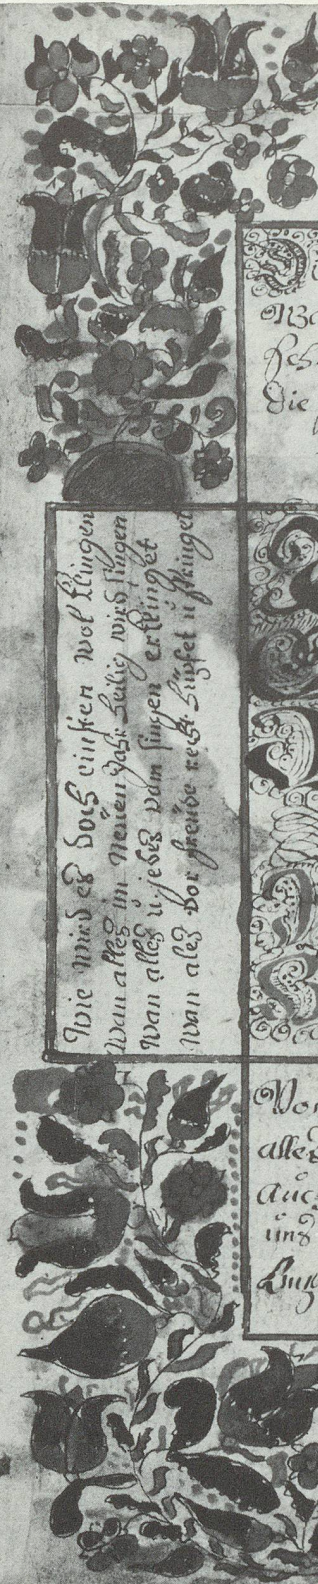 Wie wird es doch einsten wol klingen
Wan alles im neuen Jahr heilig wird singen
Wan alles u jedes vom singen erklinget
Wan ales vor freude recht hüpfet u springet
die
Vor
alles
auch
und